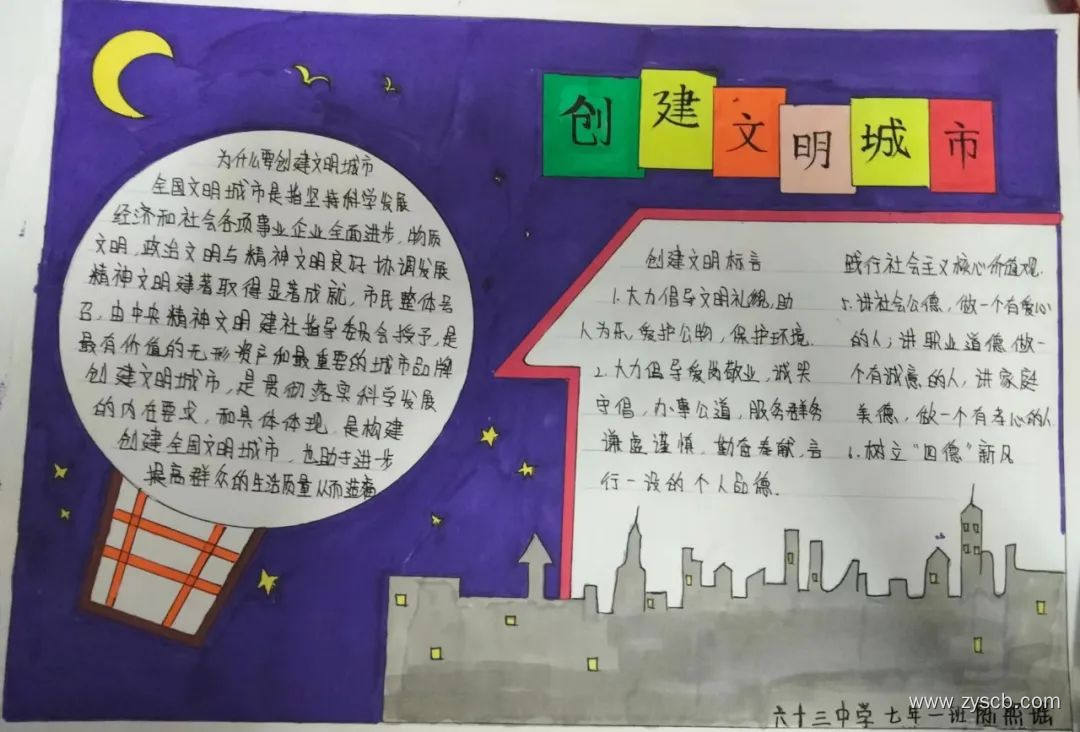 创建文明城市
为什么要创建文明城市
全国文明城市是指坚持科学发展
经济和社会各项事业企业全面进步,物质
文明,政治文明与精神文明良好协调发展
精神文明建著取得显著成就,市民整体号
召,由中央精神文明建社指导委员会授予,是
最有价值的无形资产和最重要的城市品牌
创建文明城市,是贯彻落实科学发展
的内在要求,和具体体现,是构建
创建全国文明城市,也助于进步
提高群众的生活质量从而造福
创建文明标言
1.大力倡导文明礼貌,助
人为乐,爱护公物,保护环境.
2.大力倡导爱岗敬业,诚实
守倡,办事公道,服务群务
谦虚谨慎,勤奋奉献,言
行一设的个人品德.
践行社会主义核心价值观.
5.讲社会公德,做一个有爱心
的人;讲职业道德做一
个有诚意的人,讲家庭
美德,做一个有孝心的人
6.树立“四德”新风
六十三中学七年一班
www.zyscb.com